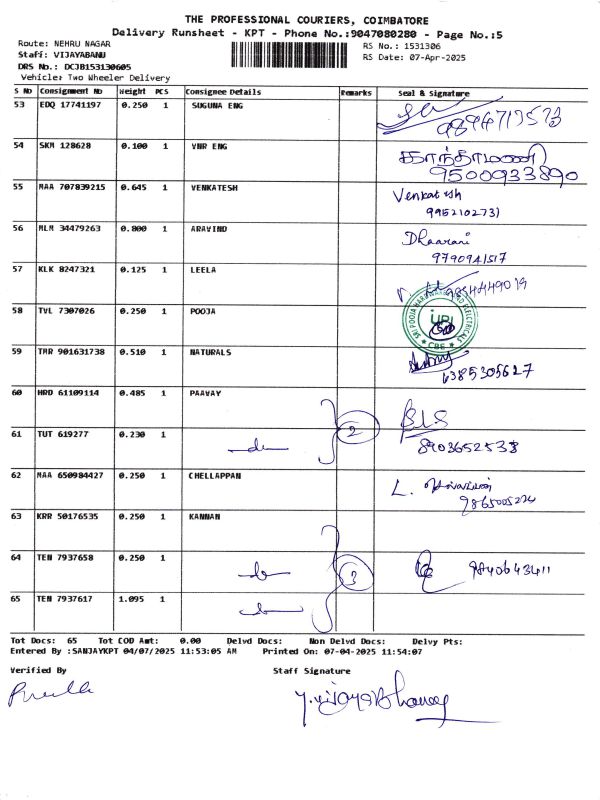 THE PROFESSIONAL COURIERS, COIMBATORE
Delivery Runsheet - KPT - Phone No.:9047080280 - Page No.:5
Route: NEHRU NAGAR RS No.: 1531306
Staff: VIJAYABANU RS Date: 07-Apr-2025
DRS No.: DCJB153130605
Vehicle: Two Wheeler Delivery
S No Consignment No Weight PCS Consignee Details Remarks Seal & Signature
53 EDQ 17741197 0.250 1 SUGUNA ENG
9894713573
54 SKM 128628 0.100 1 VNR ENG காந்தாமணி
9500933890
55 MAA 707839215 0.645 1 VENKATESH Venkatesh
9952102731
56 MLM 34479263 0.800 1 ARAVIND Dhaarani
9790941517
57 KLK 8247321 0.125 1 LEELA
58 TVL 7307026 0.250 1 POOJA SRI POOJA HARDWARE AND ELECTRICALS
CBE
59 TMR 901631738 0.510 1 NATURALS
6385305627
60 HRD 61109114 0.485 1 PAAVAY
61 TUT 619277 0.230 1 2
8903652538
62 MAA 650984427 0.250 1 CHELLAPPAN L.
63 KRR 50176535 0.250 1 KANNAN
64 TEN 7937658 0.250 1 3 9840643411
65 TEN 7937617 1.095 1
Tot Docs: 65 Tot COD Amt: 0.00 Delvd Docs: Non Delvd Docs: Delvy Pts:
Entered By :SANJAYKPT 04/07/2025 11:53:05 AM Printed On: 07-04-2025 11:54:07
Verified By Staff Signature